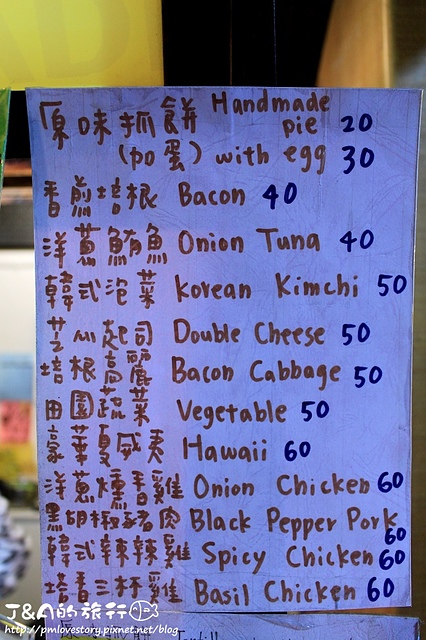 原味抓餅 Handmade pie 20
(加蛋) with egg 30
香煎培根 Bacon 40
洋蔥鮪魚 Onion Tuna 40
韓式泡菜 Korean Kimchi 50
起司 Double Cheese 50
培根高麗 Bacon Cabbage 50
田園蔬菜 Vegetable 50
豪華夏威夷 Hawaii 60
洋蔥燻香雞 Onion Chicken 60
黑胡椒豬肉 Black Pepper Pork 60
韓式辣辣雞 Spicy Chicken 60
塔香三杯雞 Basil Chicken 60
J&A的旅行
http://pmlovestory.pixnet.net/blog